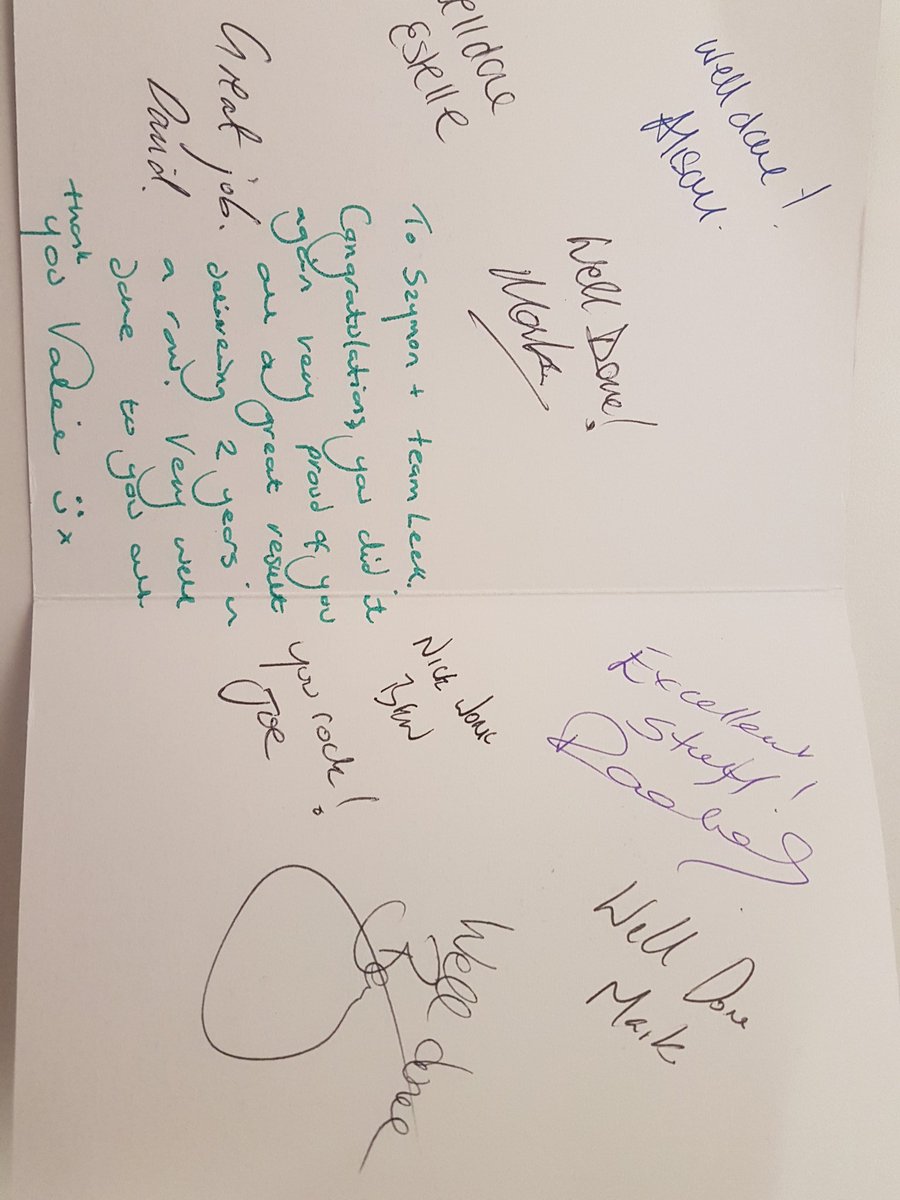 Well done!
Alison.
Well Done!
Mark
elldone
Estelle
Great job.
David.
To Szymon + team Leek.
Congratulations you did it
again very proud of you
are a great result
delivering 2 years in
a row. Very well
done to you all
thank
you Valerie
x
Excellent
Stuff!
Well Done
Mark
Nick
You rock!
Joe
Well done